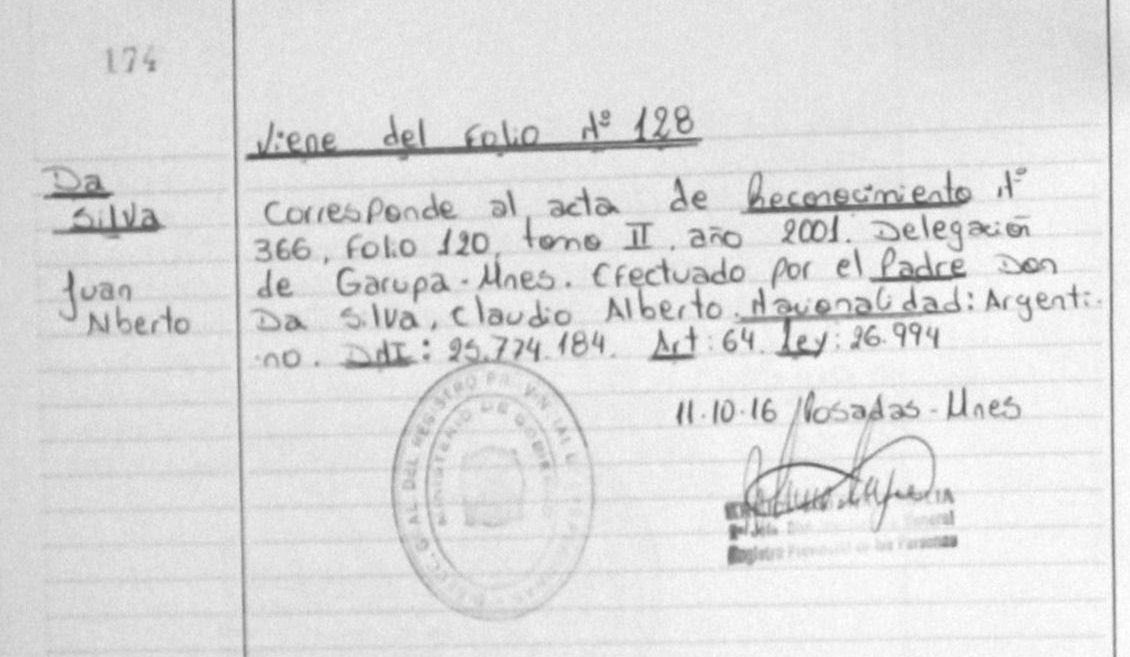 174
Viene del Folio Nº 128
Da
Silva
Juan
Alberto
Corresponde al acta de Reconocimiento Nº
366, Folio 120, tomo II, año 2001. Delegación
de Garupa-Mnes. Efectuado por el Padre Don
Da Silva, Claudio Alberto. Nacionalidad: Argenti-
no. DNI: 25.774.184. Art: 64. Ley: 26.994
11.10.16 Posadas-Mnes
DEL REGISTRO PROVINCIAL
MINISTERIO DE GOBIERNO
General
Registro Provincial de las Personas